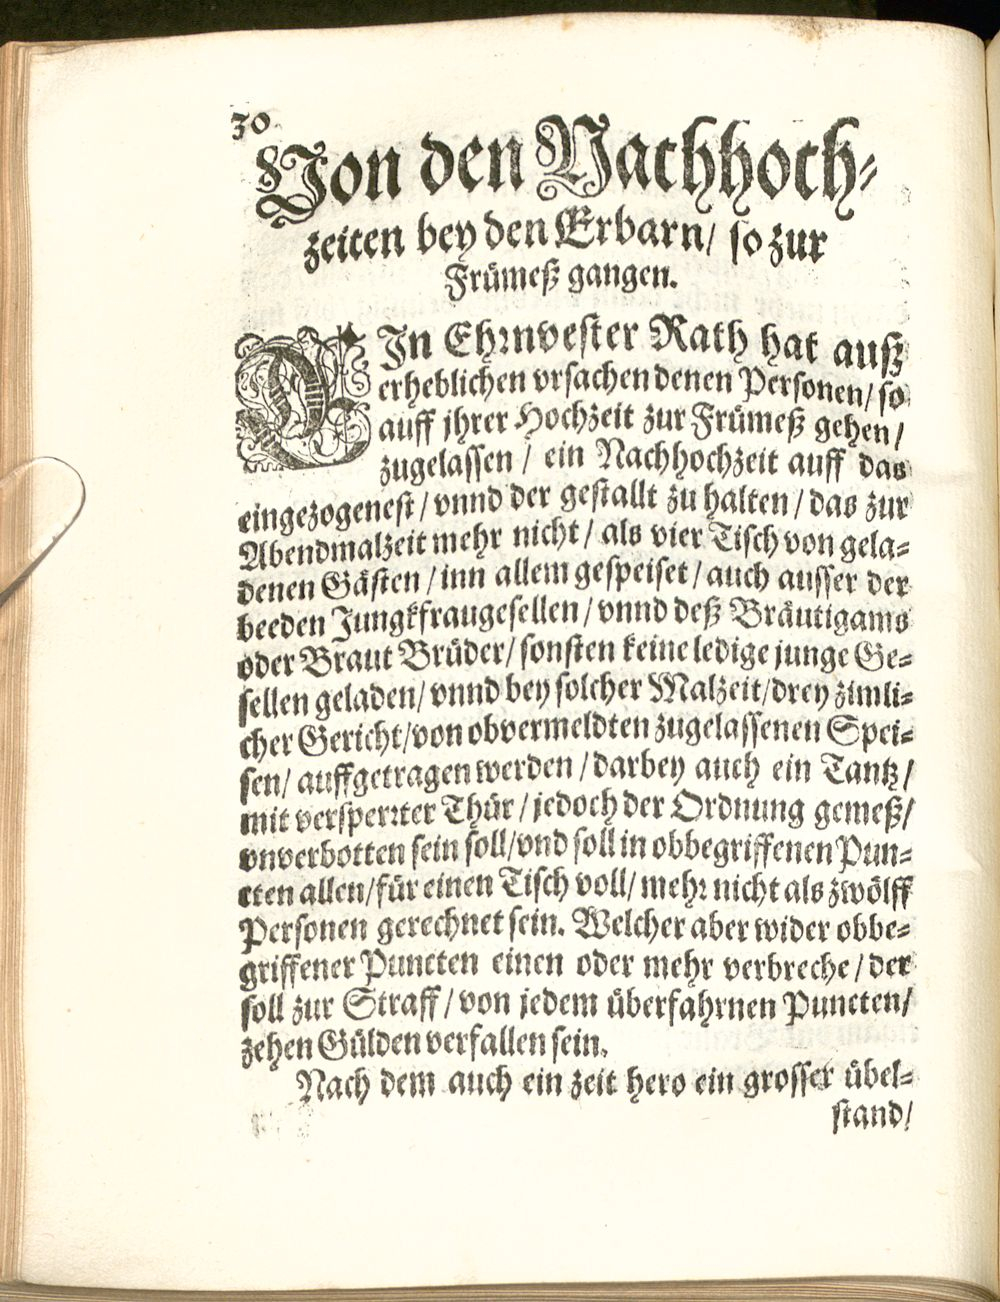 30
Von den Nachhoch-
zeiten bey den Erbarn/ so zur
Frümeß gangen.
EIn Ehrnvester Rath hat auß
erheblichen vrsachen denen Personen/ so
auff jhrer Hochzeit zur Frümeß gehen/
zugelassen / ein Nachhochzeit auff das
eingezogenest / vnnd der gestallt zu halten / das zur
Abendmalzeit mehr nicht / als vier Tisch von gela-
denen Gästen / inn allem gespeiset / auch ausser der
beeden Jungkfraugesellen / vnnd deß Bräutigams
oder Braut Brüder/ sonsten keine ledige junge Ge-
sellen geladen/ vnnd bey solcher Malzeit/ drey zimli-
cher Gericht/ von obvermeldten zugelassenen Spei-
sen/ auffgetragen werden / darbey auch ein Tantz /
mit versperrter Thür / jedoch der Ordnung gemeß/
vnverbotten sein soll/ vnd soll in obbegriffenen Pun-
cten allen/ für einen Tisch voll/ mehr nicht als zwölff
Personen gerechnet sein. Welcher aber wider obbe-
griffener Puncten einen oder mehr verbreche / der
soll zur Straff / von jedem überfahrnen Puncten/
zehen Gülden verfallen sein.
Nach dem auch ein zeit hero ein grosser übel-
stand/